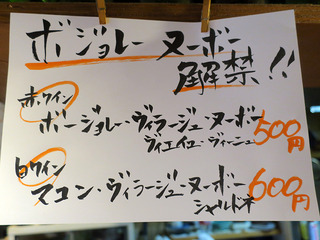 ボジョレーヌーボー
解禁!!
赤ワイン
ボージョレー・ヴィラージュ・ヌーボー 500円
ヴィエイユ・ヴィーニュ
白ワイン
マコン・ヴィラージュ・ヌーボー 600円
シャルドネ